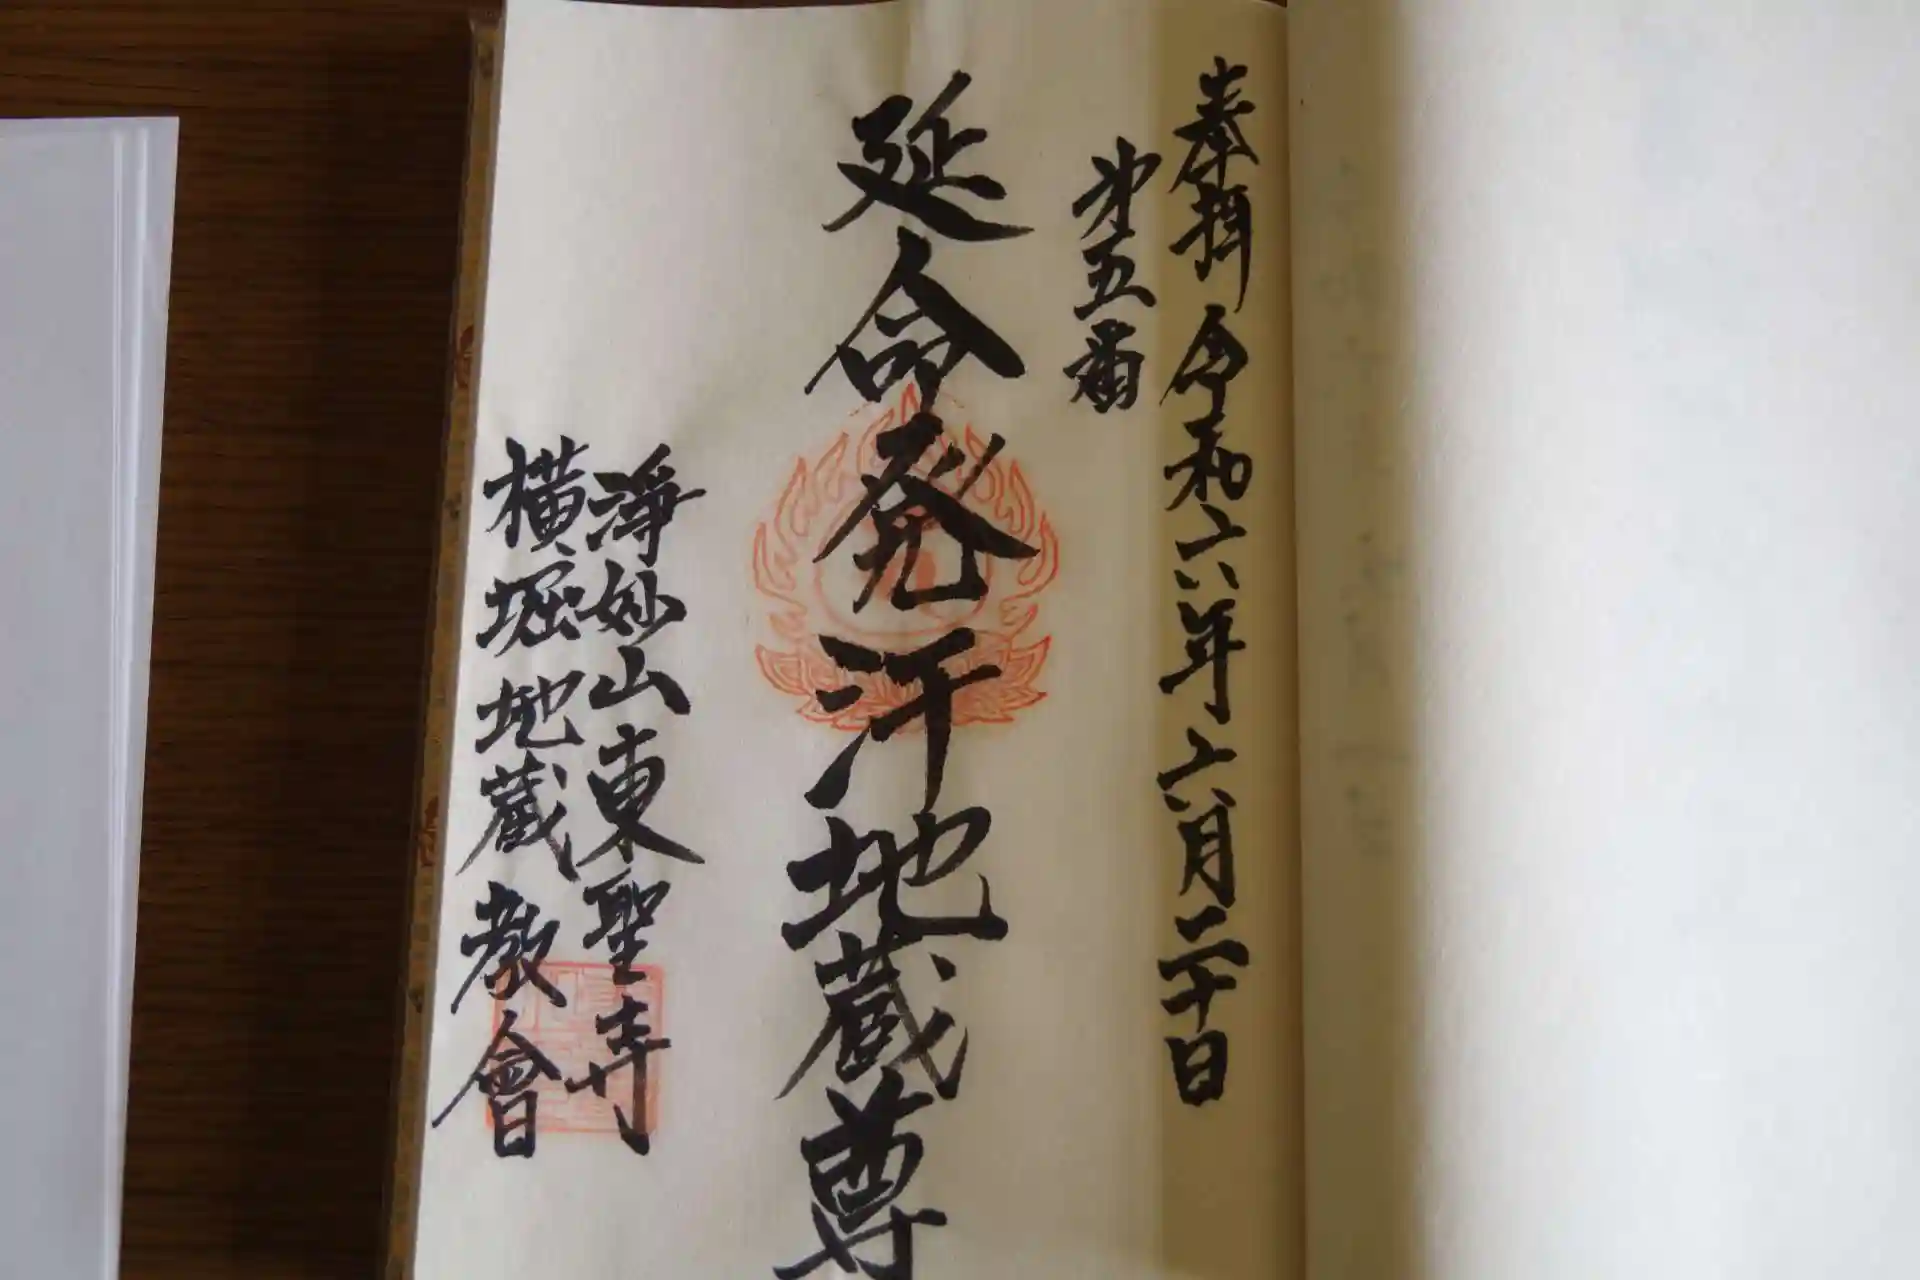 奉拝 令和六年六月二十日
第五番
延命発汗地蔵尊
淨妙山東聖寺
横堀地蔵教會